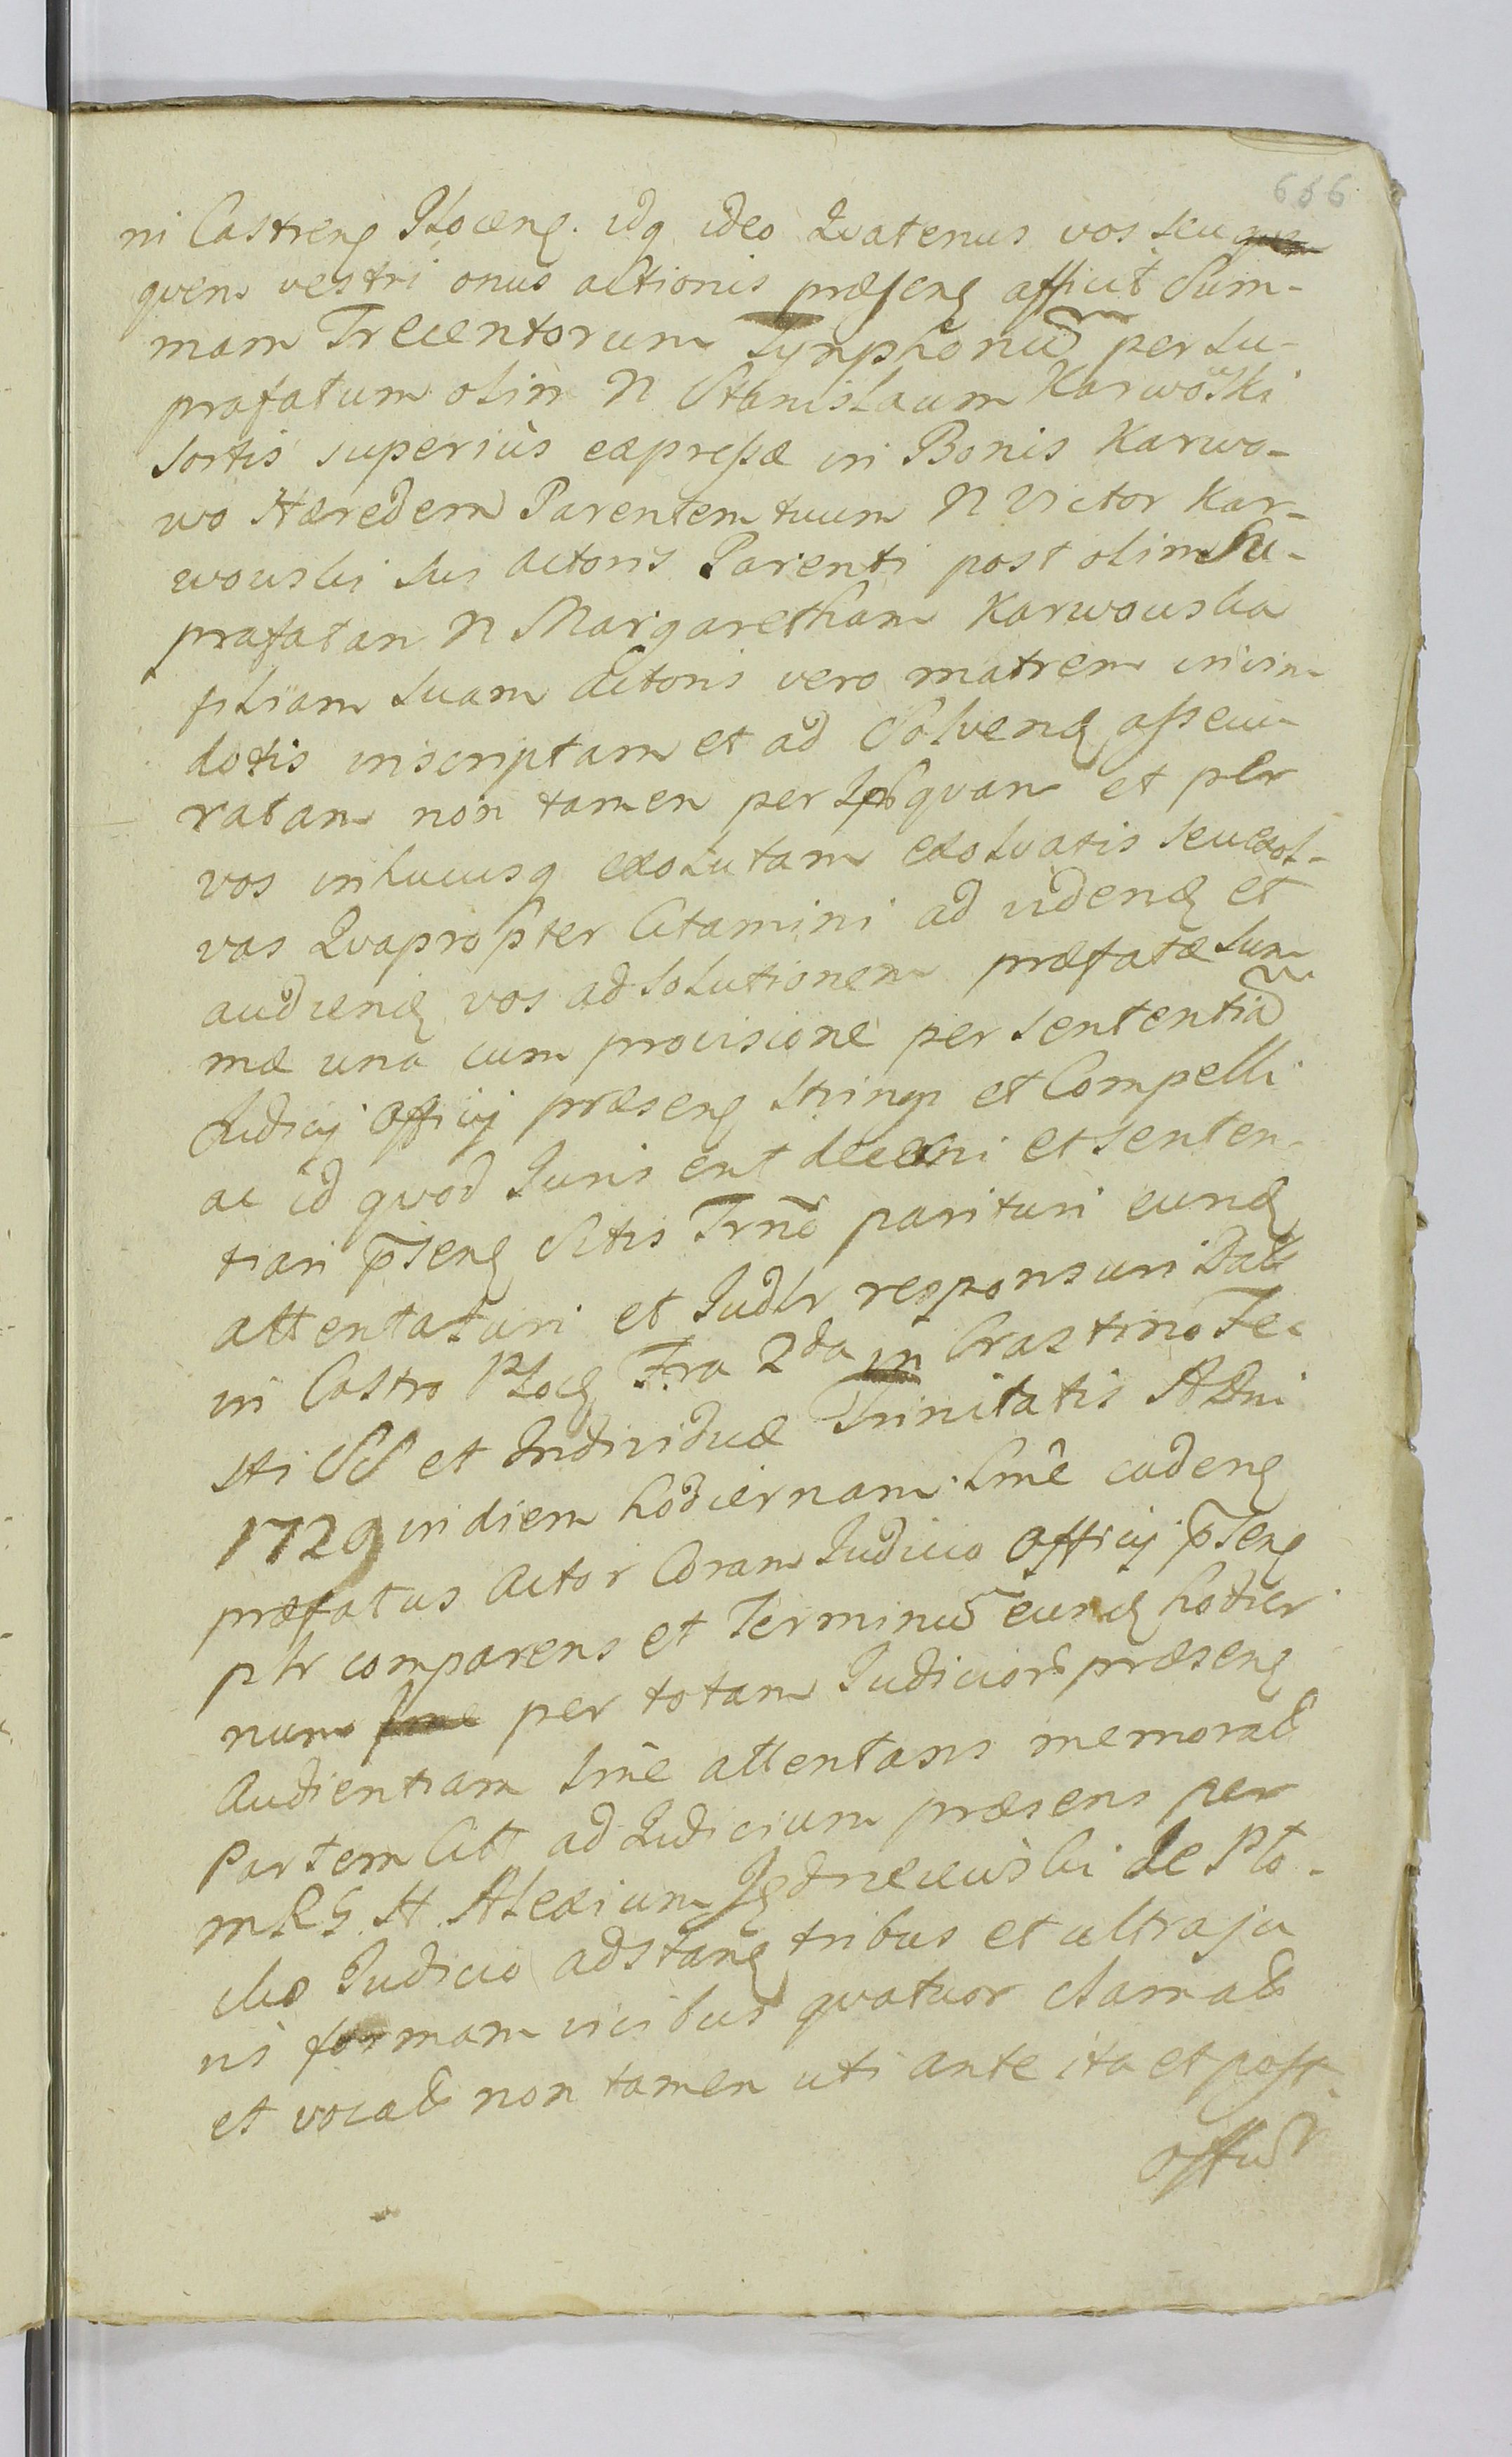 686
ni Castreng Płoceng. idq ideo Qvatenus vos seu
qvem vestri onus actionis præseng afficit Sum-
mam Trecentorum Tynphonũ per su-
præfatum olim N Stanislaum Karwoski
sortis superius expressæ in Bonis Karwo-
wo Hæredem Parentem tuum N Victor Kar-
wowski sui actoris Parenti post olim Su-
præfatan N Margaretham Karwowska
filiam suam actoris vero matrem in vim
dotis inscriptam et ad Solvend assecu-
ratam non tamen per Ipsqvam et per
vos inhucusq exolutam exolvatis seu exol-
vas Qvapropter Citamini ad videnđ et
audienđ vos ad solutionem præfatæ Sum
mæ una cum provisione per sententiã
Iudicij Officij præseng stringi et Compelli
ac id qvod Iuris erit decerni et senten-
tiari p̃seng Sitis Trno parituri eunđ
attentaturi et Iudlr responsuri Datt
in Castro Płoc F.ra 2da in Crastino Fe-
sti SS et Individuæ Trinitatis ADni
1729 in diem hodiernam Sme cadeng
præfatus actor Coram Iudicio Officij p̃seng
plr comparens et Terminũ eunđ hodier
num per totam Iudiciorũ præseng
Audientiam Sme attentans memoratt
Partem Citt ad Iudicium præsens per
m RG H Alexium Jędrzeiewski de Pło-
cko Iudicio adstang tribus et ultra ju
ris formam vicibus qvatuor clamatt
et vocatt non tamen uti ante ita et post-